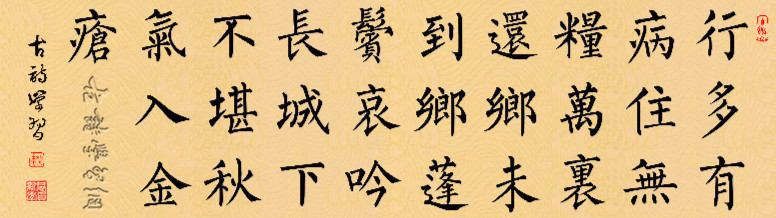 行多有
病住無
糧萬裏
還鄉未
到鄉蓬
鬢哀吟
長城下
不堪秋
氣入金
瘡